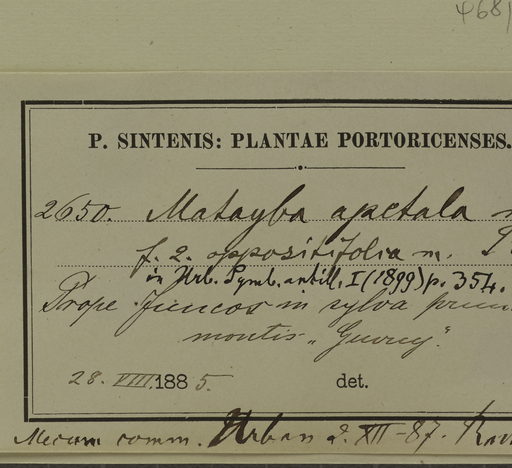 468
P. SINTENIS: PLANTAE PORTORICENSES.
2650. Matayba apetala
f. 2. oppositifolia m.
in Urb. Symb. antill. I (1899) p. 354.
Prope Juncos in sylva
montis „
28. VIII. 1885. det.
Mecum comm. Urban 2. XII-87.